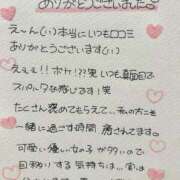 ありがとうございました。
え〜ん(;;)本当にいつも口コミ
ありがとうございます(;;)
えぇぇ!!ホント?!?笑 いつも真面目で
スパルタな感じです!笑
たくさん褒めてもらえて、私の方こそ
一緒に過ごす時間 癒されてます。
可愛い優しい女の子が多いので
目移りする気持ちは、実は